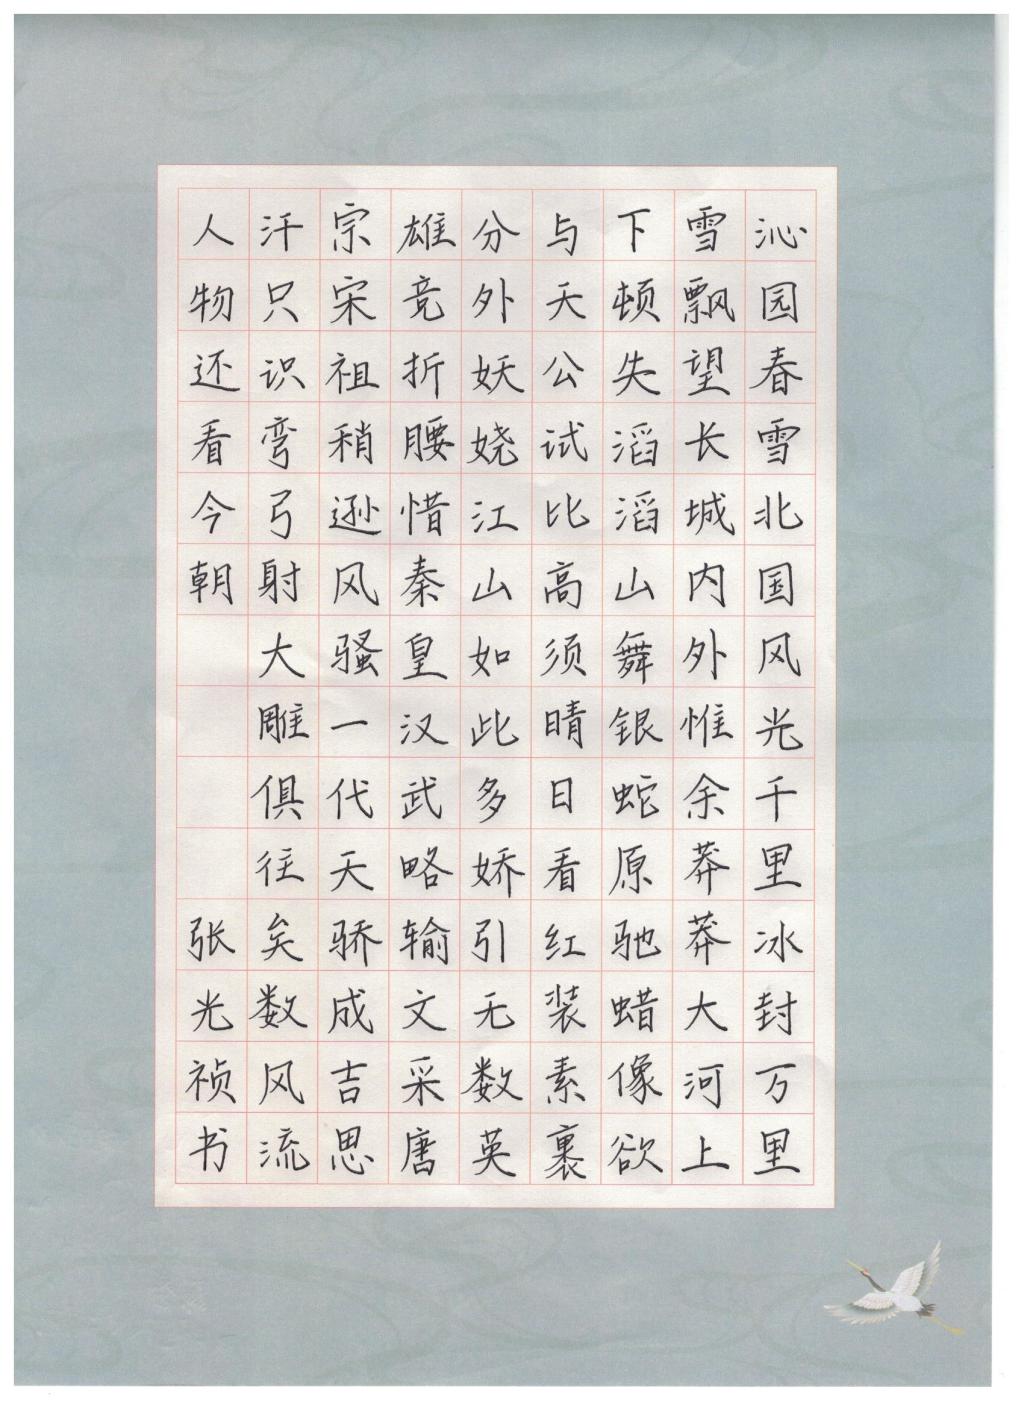 沁园春雪北国风光千里冰封万里
雪飘望长城内外惟余莽莽大河上
下顿失滔滔山舞银蛇原驰蜡像欲
与天公试比高须晴日看红装素裹
分外妖娆江山如此多娇引无数英
雄竞折腰惜秦皇汉武略输文采唐
宗宋祖稍逊风骚一代天骄成吉思
汗只识弯弓射大雕俱往矣数风流
人物还看今朝
张光祯书